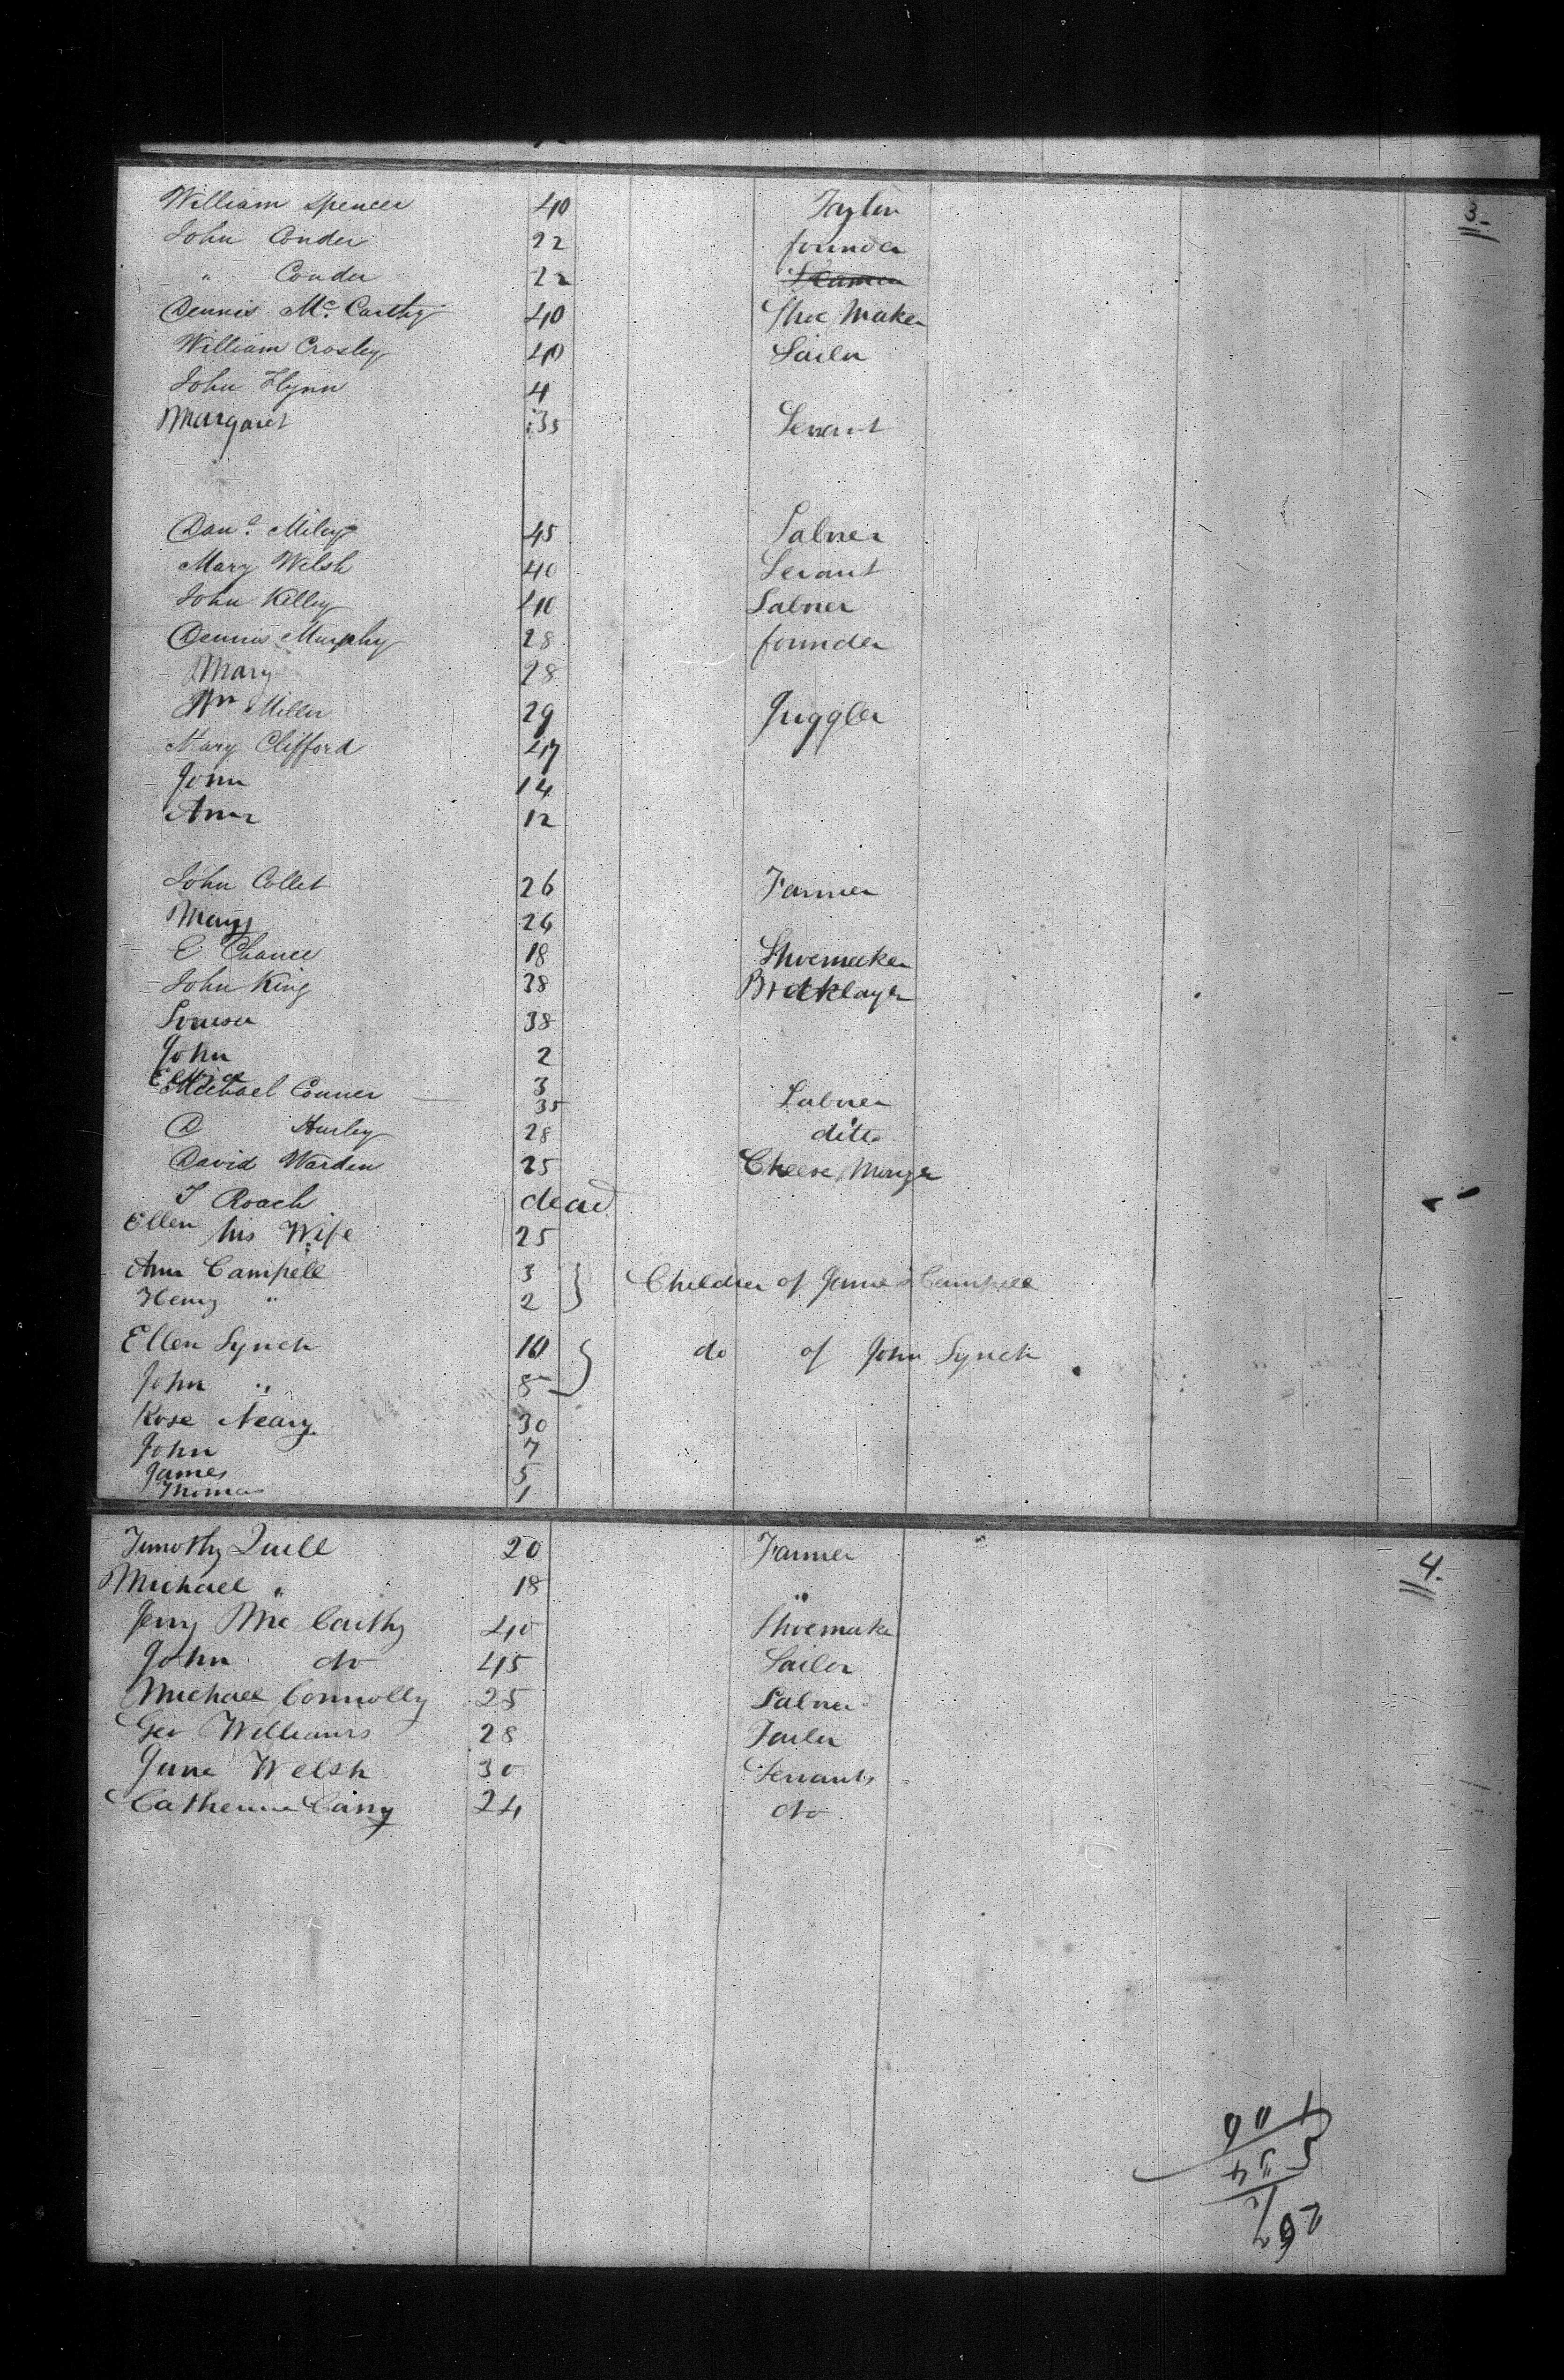 3.
William Spencer 40 Taylor
John Conder 22 founder
" Conder 22
Dennis Mc. Carthy 40 Shoe Maker
William Crosley 40 Sailor
John Flynn 4
Margaret 35 Servant
Danl. Miley 45 Labrer
Mary Welsh 40 Servant
John Kelley 40 Labrer
Dennis Murphy 28 founder
Mary 28
Wm Miller 29 Juggler
Mary Clifford 47
John 14
Ann 12
John Collet 26 Farmer
Mary 24
E Chance 18 Shoemaker
John King 38 Bricklayer
Louisa 38
John 2
Eliza 3
Michael Conner 35 Labrer
D Hurley 28 ditto
David Warden 25 Cheese Monger
T Roach dead
Ellen his Wife 25
Ann Campell 3 } Children of James Campell
Henry " 2
Ellen Lynch 10 } do of John Lynch
John " 8
Rose Neary 30
John 7
James 5
Thomas 1
4.
Timothy Quill 20 Farmer
Michael " 18 "
Jerry Mc Carthy 40 Shoemaker
John do 45 Sailor
Michael Connolly 25 Labrer
Geo Williams 28 Tailer
Jane Welsh 30 Servants
Catherine Carry 24 do